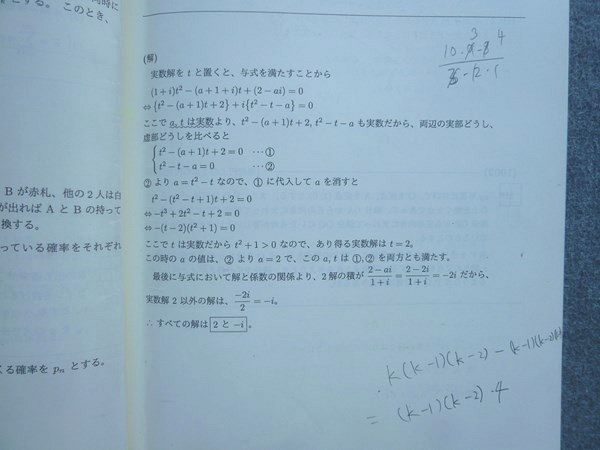 とする。このとき、
B が赤札、他の2人は白
が出れば A と B の持って
換する。
っている確率をそれぞれ
くる確率を pₙ とする。
(解)
実数解を t と置くと、与式を満たすことから
(1+i)t²−(a+1+i)t+(2−ai)=0
⇔{t²−(a+1)t+2}+i{t²−t−a}=0
ここで a, t は実数より、t²−(a+1)t+2, t²−t−a も実数だから、両辺の実部どうし、
虚部どうしを比べると
t²−(a+1)t+2=0 …①
t²−t−a=0 …②
②より a=t²−t なので、①に代入して a を消すと
t²−(t²−t+1)t+2=0
⇔−t³+2t²−t+2=0
⇔−(t−2)(t²+1)=0
ここで t は実数だから t²+1>0 なので、あり得る実数解は t=2。
この時の a の値は、②より a=2 で、この a, t は①,②を両方とも満たす。
最後に与式において解と係数の関係より、2解の積が (2−ai)/(1+i)=(2−2i)/(1+i)=−2i だから、
実数解2以外の解は、−2i/2=−i。
∴すべての解は 2 と −i。
3 4
k(k-1)(k-2) − (k-1)(k-2)
= (k-1)(k-2)・4